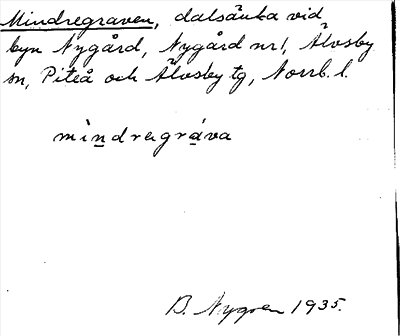 Mindregraven, dalsänka vid
byn Nygård, Nygård nr 1, Älvsby
sn, Piteå och Älvsby tg, Norrb. l.
mìndregráva
B. Nygren 1935.